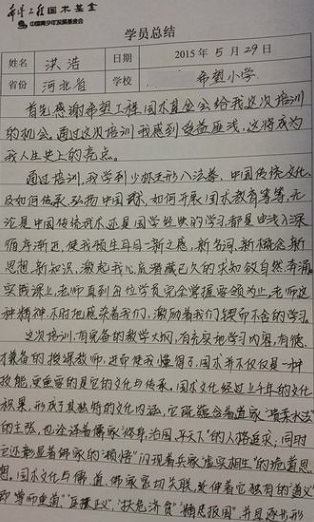 希望工程国术基金
中国青少年发展基金会
学员总结
姓名 洪浩 日期 2015年5月29日
省份 河北省 学校 希望小学
首先感谢希望工程,国术基金会给我这次培训
的机会,通过这次培训我感到受益匪浅,这将成为
我人生史上的亮点。
通过培训,我学到少林五形八法拳,中国传统文化
及如何传承弘扬中国武术,如何开展国术教育等等,无
论是中国传统武术还是国学经典的学习都是由浅入深
循序渐进,使我倾生耳目一新之感,新名词,新概念,新
思想,新知识,激起我心底潜藏已久的求知欲自然奔涌,
实践课上,老师直到每位学员完全掌握要领为止,老师这
种精神不时地感染着我们,激励着我们锲而不舍的学习。
这次培训,有完备的教学大纲,有充实地学习内容,有德
才兼备的授课教师,进而使我懂得了,国术并不仅仅是一种
技能,更重要的是它的文化与传承,国术文化经过上千年的文化
积累,形成了其独特的文化内涵,它既蕴含着道家
的主张,也诠译着儒家"修身,治国,平天下"的人格追求;同时
它还彰显着佛家的"顿悟"闪现着兵家"虚实相生"的诡道思
想,国术文化与儒道佛家密切关联,延伸着它独有的"道义"
即 "匡扶正义","扶危济贫""精忠报国"并且逐步形